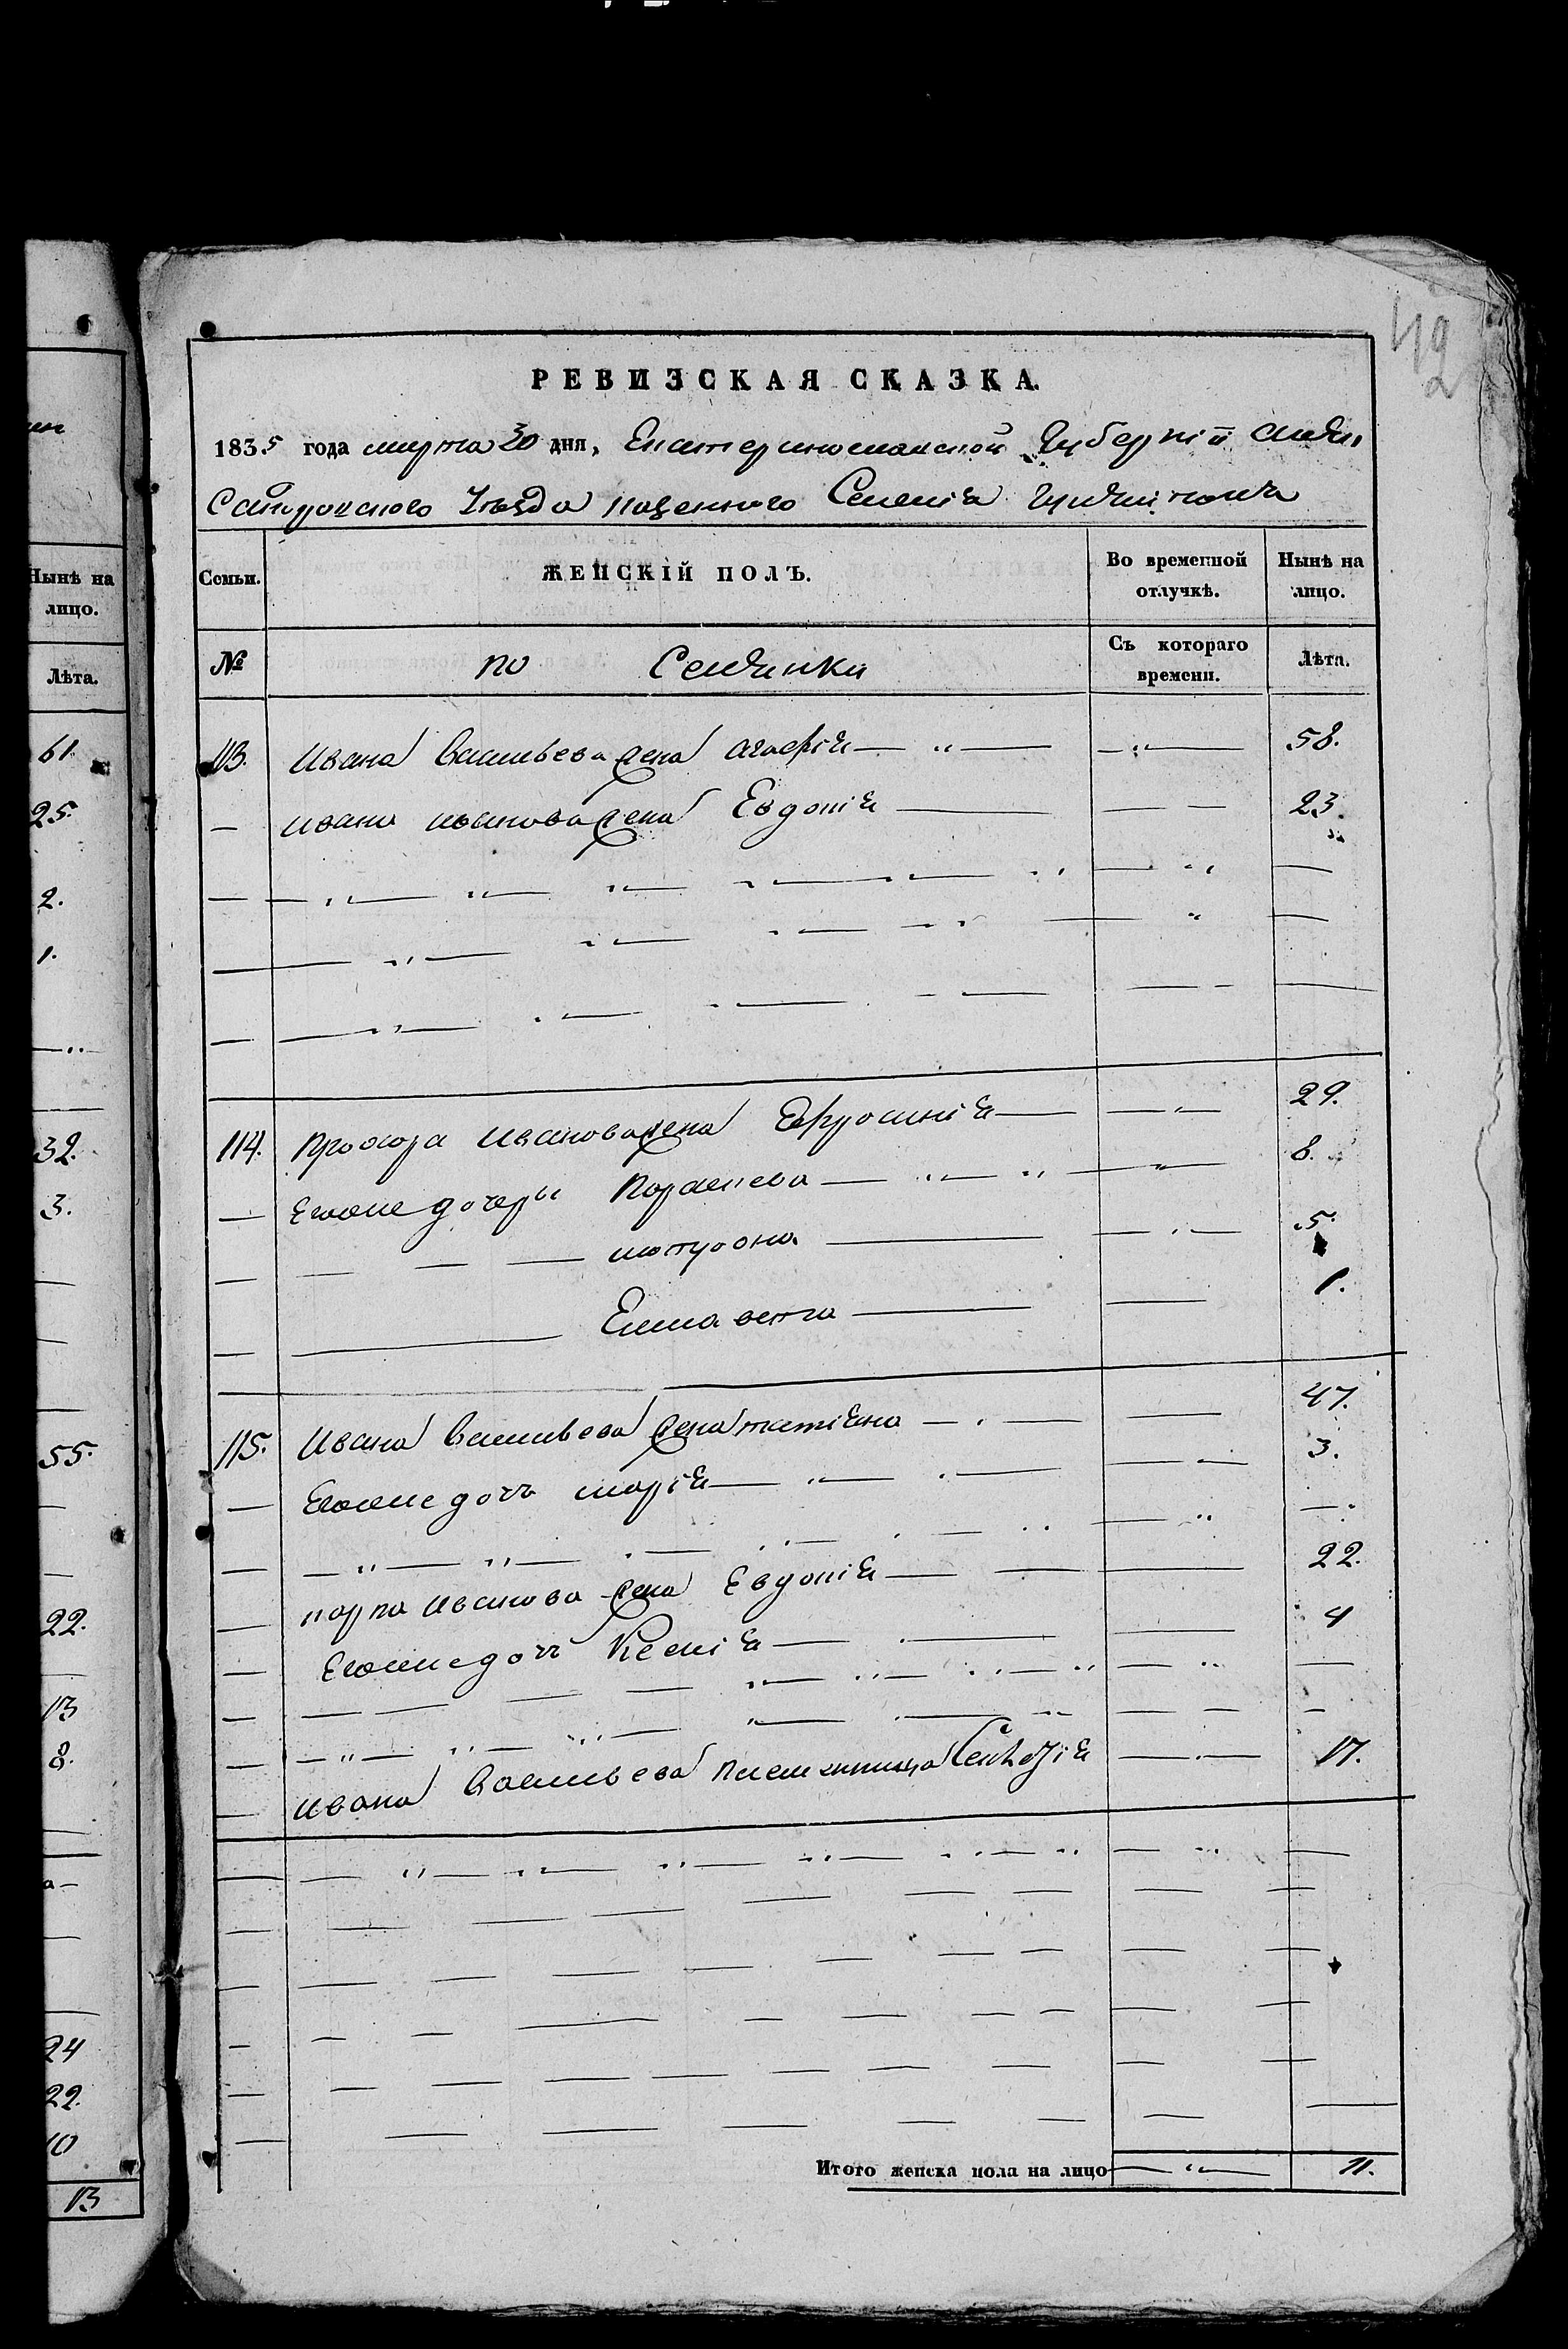 42
РЕВИЗСКАЯ СКАЗКА.
1835 года марта 30 дня, Екатеринославской Губерніи Алек
сандровскаго Уѣзда казеннаго Селенія
Семьи. ЖЕНСКІЙ ПОЛЪ. Во временной отлучкѣ. Нынѣ на лицо.
№ по Съ котораго времени. Лѣта.
113. Ивана Васильева жена Агафія — 58.
— Ивана Иванова жена Евдокія — 23.
114. Прохора Иванова жена Ефросинія — 29.
— Егоже дочеры — 8.
— матрона — 5.
— Елисавета — 1.
115. Ивана Васильева жена татіана — 47.
— Егоже дочь марія — 3.
— карпа Иванова жена Евдокія — 22.
— Егоже дочь Ксенія — 4
— Ивана Васильева племянница — 17.
Итого женска пола на лицо — 11.
Нынѣ на
лицо.
Лѣта.
61.
25.
2.
1.
32.
3.
55.
22.
13
8.
24
22.
10
13